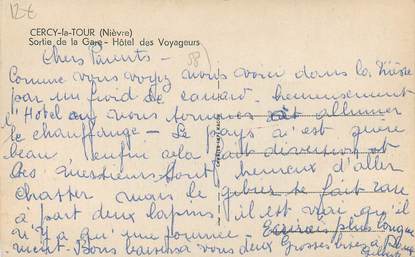 12€
CERCY-la-TOUR (Nièvre)
Sortie de la Gare - Hôtel des Voyageurs
58
Chers Parents -
Comme vous voyez nous voici dans la Nièvre
par un froid de canard - heureusement
l'Hôtel où nous sommes a allumer
le chauffage - Le pays n'est guère
beau, enfin cela fait diversion et
ces messieurs sont heureux d'aller
chasser mais le gibier se fait rare
à part deux lapins il est vrai qu'il
n'y a qu' une journée - Ecrirais plus longue
ment - Bons baisers à vous deux Grosses bises à